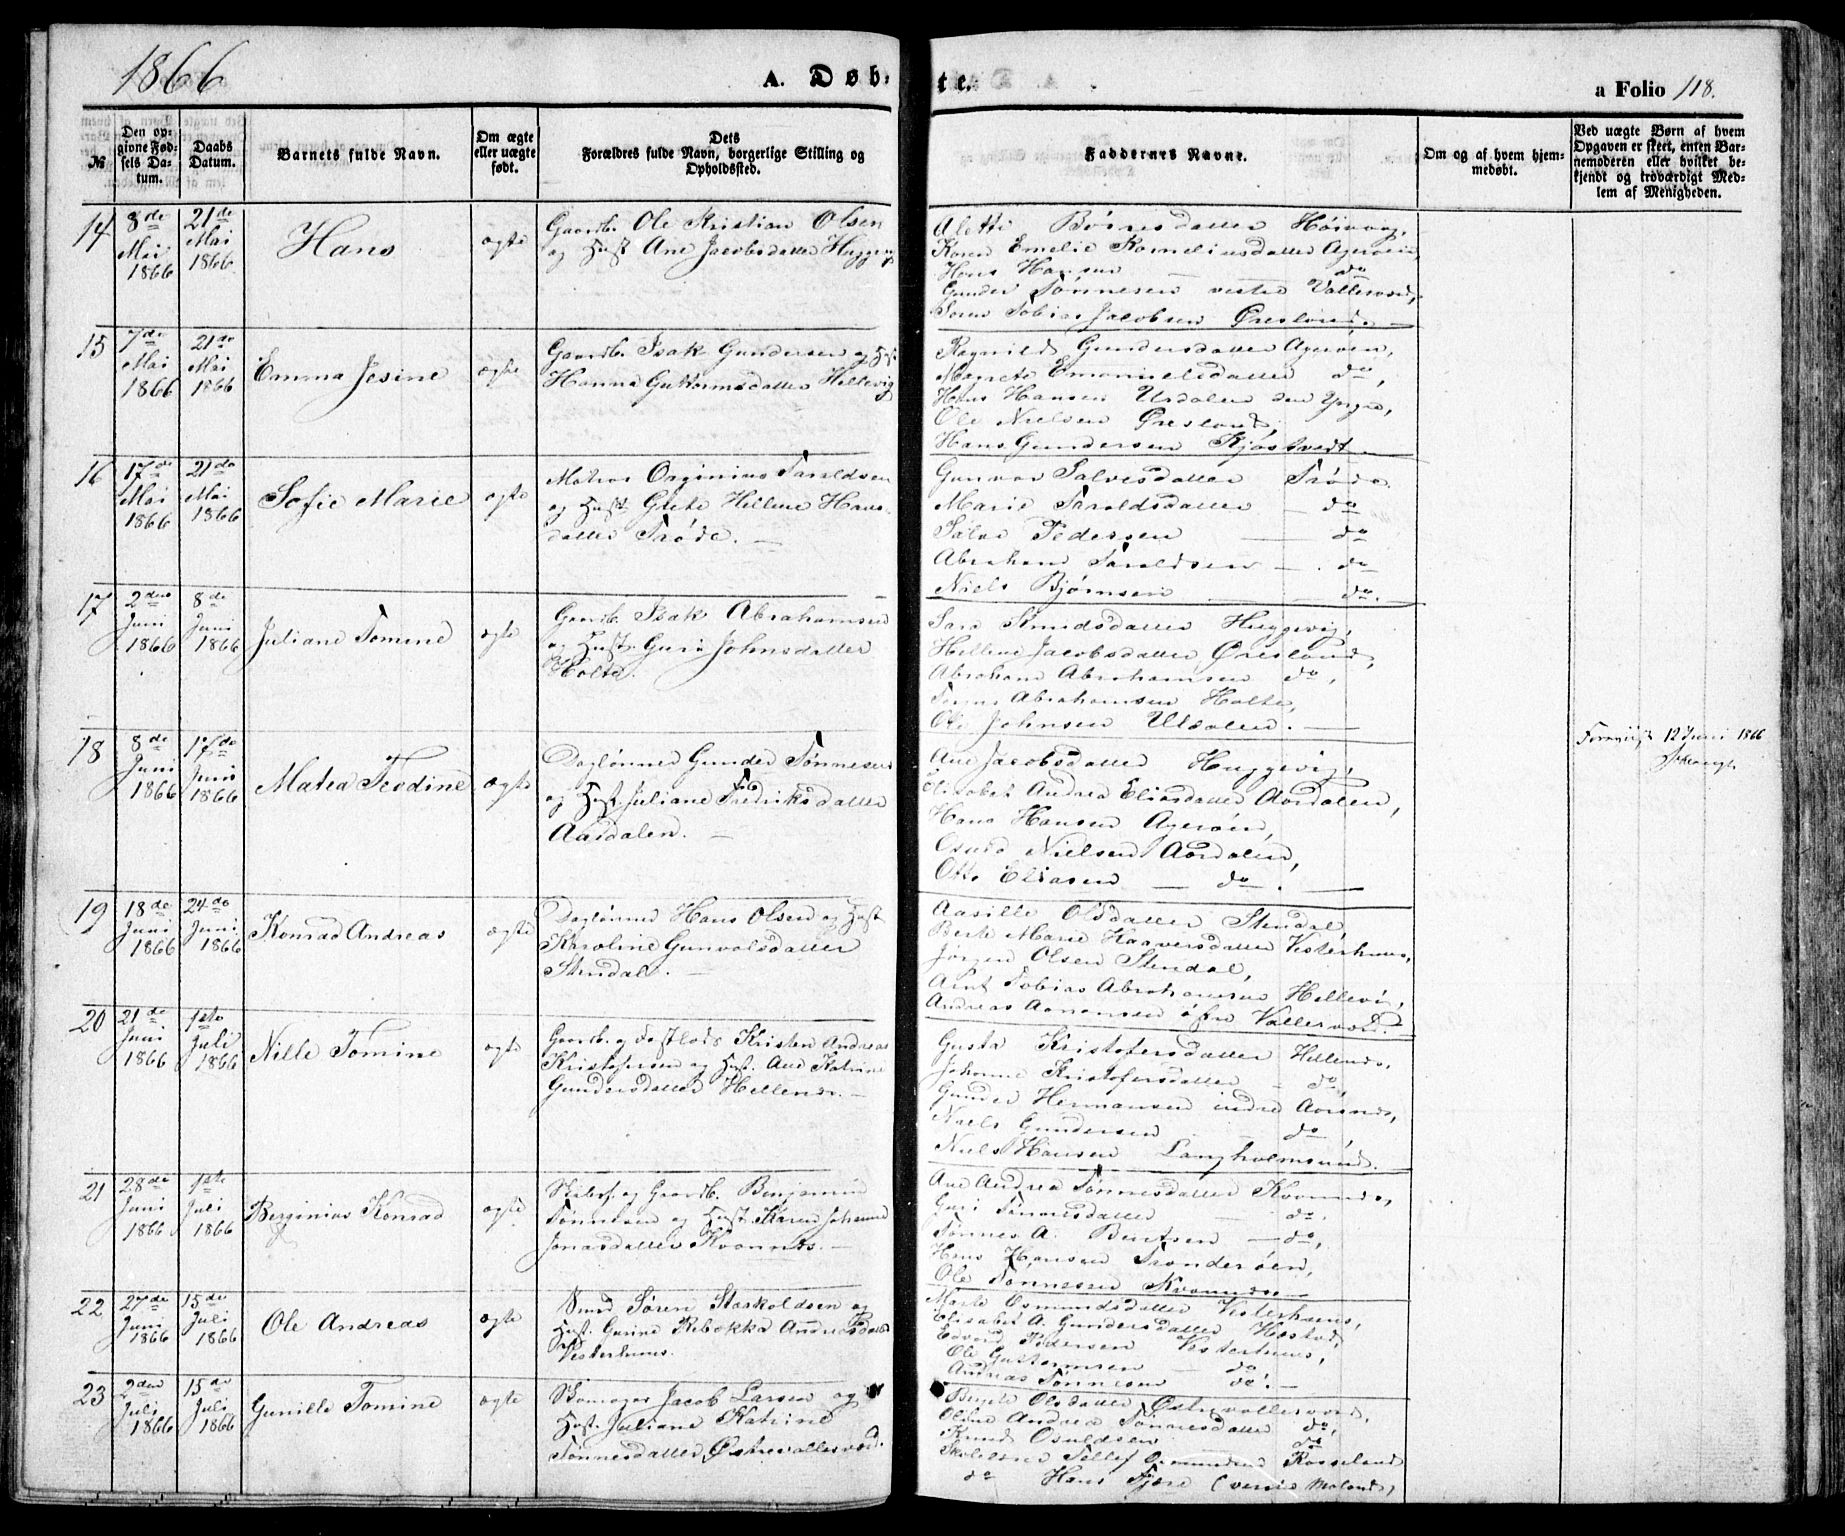 1866
A. Døb-
te.
a Folio 118.
№
Den op-
givne Fød-
sels Da-
tum.
Daabs
Datum.
Barnets fulde Navn.
Om ægte
eller uægte
født.
Dets
Forældres fulde Navn, borgerlige Stilling og
Opholdssted.
Faddernes Navne.
Om og af hvem hjem-
medøbt.
Ved uægte Børn af hvem
Opgaven er skeet, enten Bar-
nemoderen eller hvilket be-
kjendt og troværdigt Med-
lem af Menigheden.
14
8de
Mai
1866
21de
Mai
1866
Hans
ægte
Gaardb. Ole Kristian Olsen
og Hust Ane Jacobsdatter Huggevig
Karen Emelie Korneliusdatter Agerøen,
Hans Hansen do
Gunder Tønnesen vestre Vallesværd,
Søren Tobias Jacobsen Øresland. —
15
7de
Mai
1866
21de
Mai
1866
Emma Jesine
ægte
Gaardb. Isak Gundersen og Hust
Hanna Guttormsdatter Hellevig
Ragnild Gundersdatter Agerøen,
Marete Emanuelsdatter do,
Hans Hansen Urdalen den Yngre,
Ole Nielsen Øresland,
Hans Gundersen Kjøstvedt —
16
17de
Mai
1866
21de
Mai
1866
Sofie Marie
ægte
Matros Orginius Taraldsen
og Hust Grete Hellene Hans-
datter Trøde. —
Gunvor Salvesdatter Trøde.
Marie Taraldsdatter — do
Salve Pedersen — do
Abraham Taraldsen — . do
Niels Bjørnsen — do. —
17
2den
Juni
1866
8de
Juni
1866
Juliane Tomine
ægte
Gaardb. Isak Abrahamsen
og Hust. Guri Johnsdatter
Holte.
Sara Knudsdatter Huggevig,
Hellene Jacobsdatter Øresland,
Abraham Abrahamsen do,
Abrahamsen Holte,
Ole Johnsen Urdalen. —
18
8de
Juni
1866
17de
Juni
1866
Matea Teodine
ægte
Daglønner Gunder Tønnesen
og Hust Juliane Fredriksdatter
Aasdalen. —
Ane Jacobsdatter Huggevig,
Elisabet Andrea Eliasdatter Aasdalen,
Hans Hansen Agerøen,
Nielsen Aasdalen,
Otto Eliasen — do . —
12 Juni 1866
19
18de
Juni
1866
24de
Juni
1866
Konrad Andreas
ægte
Daglønner Hans Olsen og Hust
Karoline Gunvalsdatter
Stendal. —
Aasille Olsdatter Stendal,
Berte Marie Haaversdatter Vesterhuus,
Jørgen Olsen Stendal,
Arnt Tobias Abrahamsen Hellevig,
Andreas Aanonsen øfre Vallesværd. —
20
21de
Juni
1866
1ste
Juli
1866
Nille Tomine
ægte
Gaardb. og Kristen Andreas
Kristofersen og Hust. Ane Katrine
Gundersdatter Hellenes. —
Gusta Kristofersdatter Hellenes,
Johanne Kristofersdatter — do,
Gunder Hermansen indre Aarsnes,
Niels Gundersen — do,
Niels Hansen Langholmsund.
21
28de
Juni
1866
1ste
Juli
1866
Berginius Konrad
ægte
Skolef. og Gaardb. Benjamin
Tønnesen og Hust. Karen Johanne
Jonasdatter Kvannes. —
Ane Andrea Tønnesdatter Kvannes,
Guri Tønnesdatter — do.
Tønnes A. Bentsen — do,
Hans Hansen Tronderøen,
Ole Tønnessen Kvannes —
22
27de
Juni
1866
15de
Juli
1866
Ole Andreas
ægte
Smed Søren Staskoldsen og
Hust. Gurine Rebekka Andreasdatter
Vesterhuus.
Marte Osmundsdatter Vesterhuus,
Elisabet A. Gundersdatter Hæstvedt,
Edvard Pedersen Vesterhuus,
Ole Guttormsen — do
Andreas Tønnesen do. —
23
2den
Juli
1866
15de
Juli
1866
Gunille Tomine
ægte
Jacob Larsen og
Hust. Juliane Katrine
Tønnesdatter, Østrevallesværd.
Olsdatter Østrevallesværd,
Oline Andrea Tønnesdatter do,
Knud Osuldsen do
Tellef Osmundsen Rosseland
do Hans Fjære (vestre Moland)